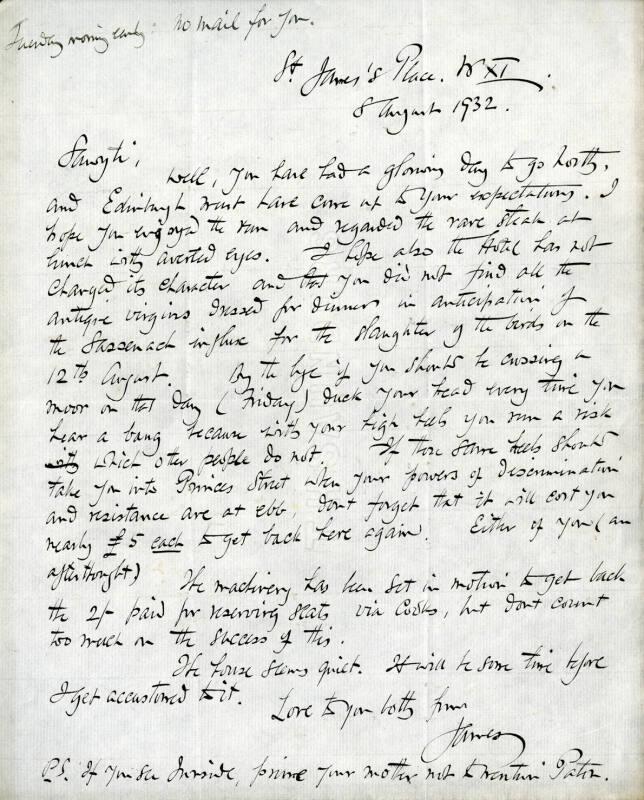 Tuesday morning early: No mail for you.
St. James's Place. W XI.
8 August 1932.
Well, you have had a glorious day to go North,
and Edinburgh must have come up to your expectations. I
hope you enjoyed the run and regarded the rare steak at
lunch with averted eyes. I hope also the Hotel has not
changed its character and that you did not find all the
antique virgins dressed for dinners in anticipation of
the Sassenach influx for the slaughter of the birds on the
12th August. By the bye if you should be crossing a
moor on that day (Friday) duck your head every time you
hear a bang because with your high heels you run a risk
which other people do not. If those same heels should
take you into Princes Street when your powers of Descrimination
and resistance are at ebb, don't forget that it will cost you
nearly £5 each to get back here again. Either of you (an
afterthought)
The machinery has been set in motion to get back
the 2/- paid for reserving seats via Cooks, but don't count
too much on the success of this.
The house seems quiet. It will be some time before
I get accustomed to it.
Love to you both from
James
P.S. If you see, prime your mother not to mention Paton.